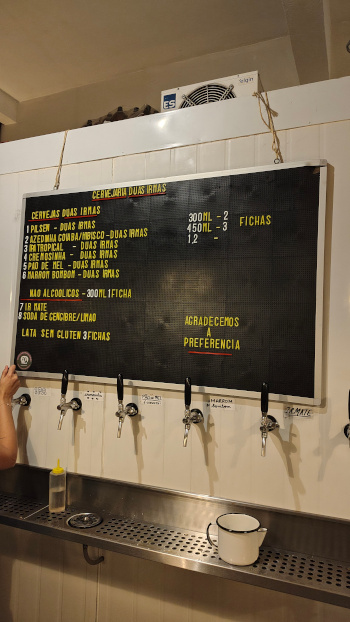 CERVEJARIA DUAS IRMAS
CERVEJAS DUAS IRMAS
1 PILSEN - DUAS IRMAS
2 AZEDINHA GOIABA/HIBISCO - DUAS IRMAS
3 IPATROPICAL - DUAS IRMAS
4 CREMOSINHA - DUAS IRMAS
5 PAO DE MEL - DUAS IRMAS
6 MARROM BOMBOM - DUAS IRMAS
300ML - 2
450ML - 3 FICHAS
1,2 -
NAO ALCOOLICOS - 300ML 1 FICHA
7 IR MATE
8 SODA DE GENGIBRE/LIMAO
LATA SEM GLUTEN 3 FICHAS
AGRADECEMOS
A
PREFERENCIA
ES
elgin
MARROM